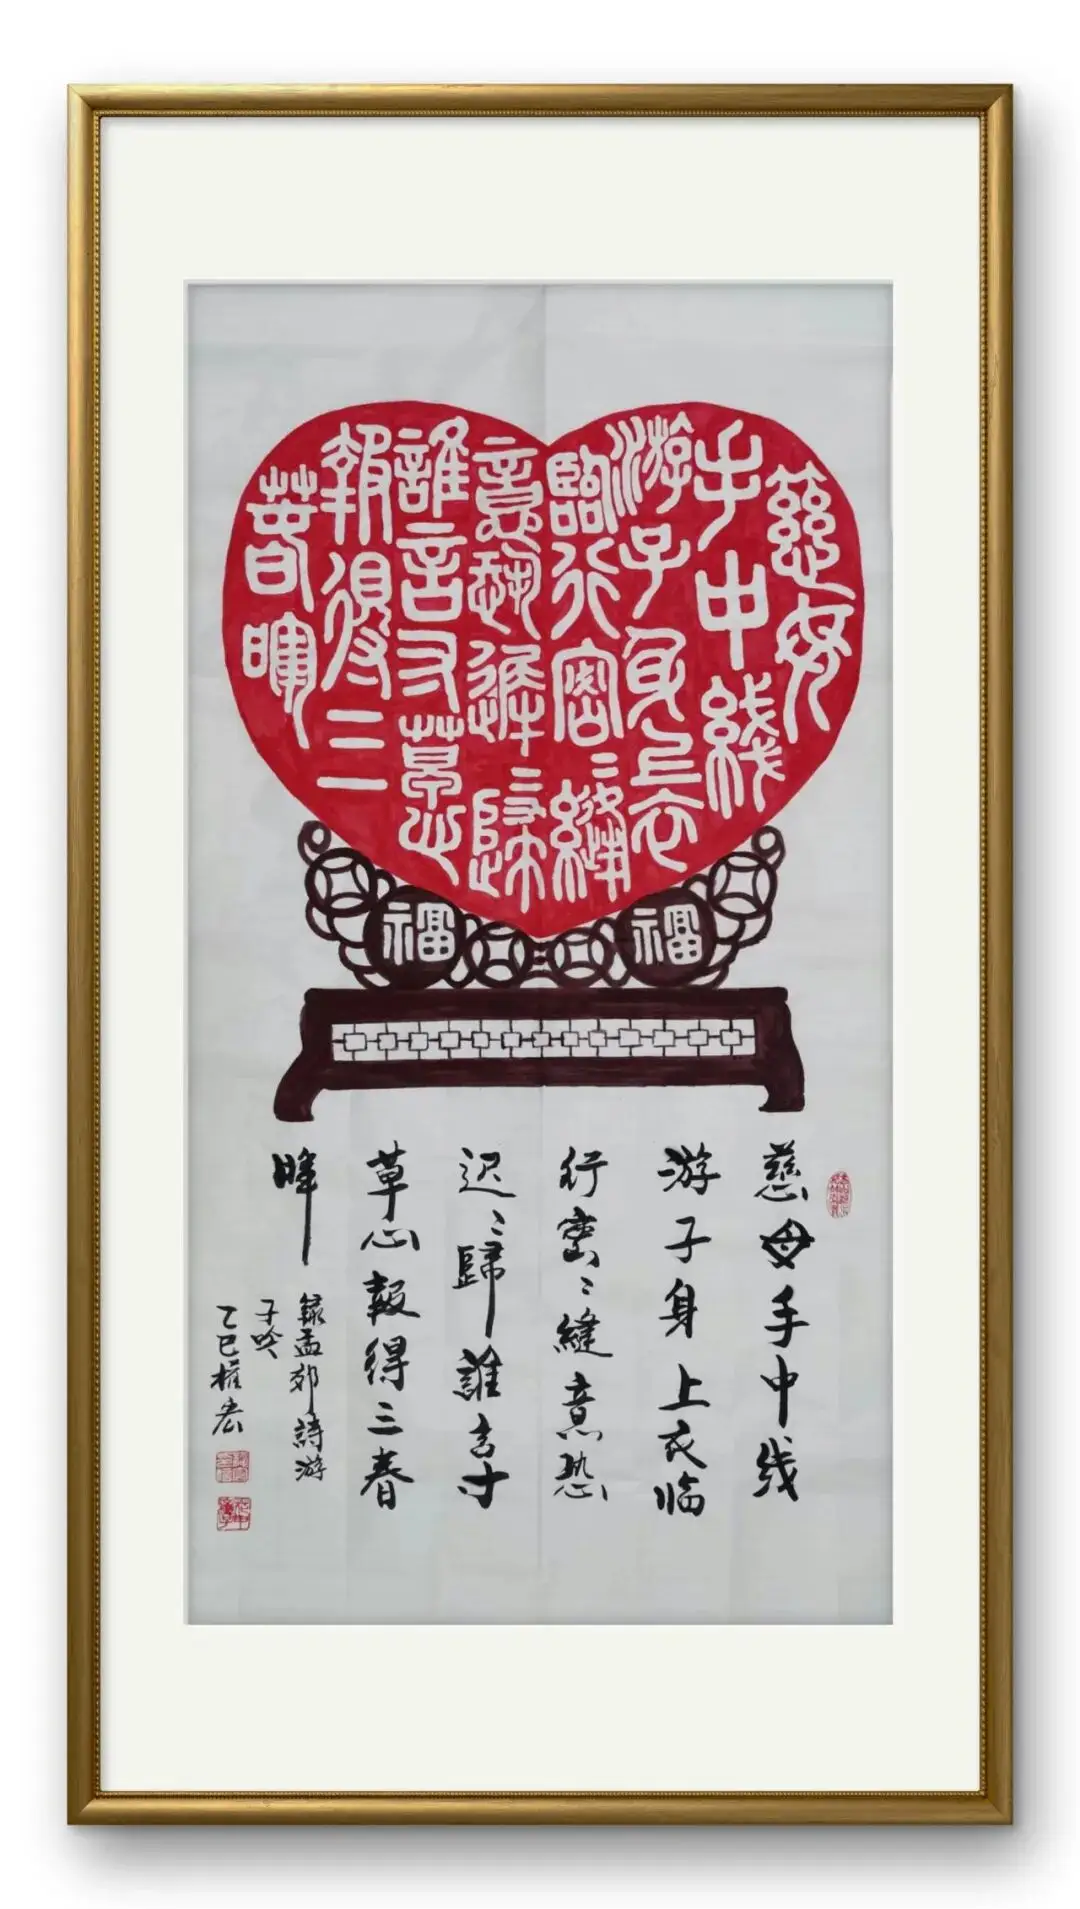 慈母
手中线
游子身上衣
臨行密〻縫
意恐遲〻歸
誰言寸草心
報得三
春暉
福
福
慈母手中线
游子身上衣临
行密〻縫意恐
迟〻歸誰言寸
草心報得三春
暉
録孟郊詩游
子吟
乙巳權宏